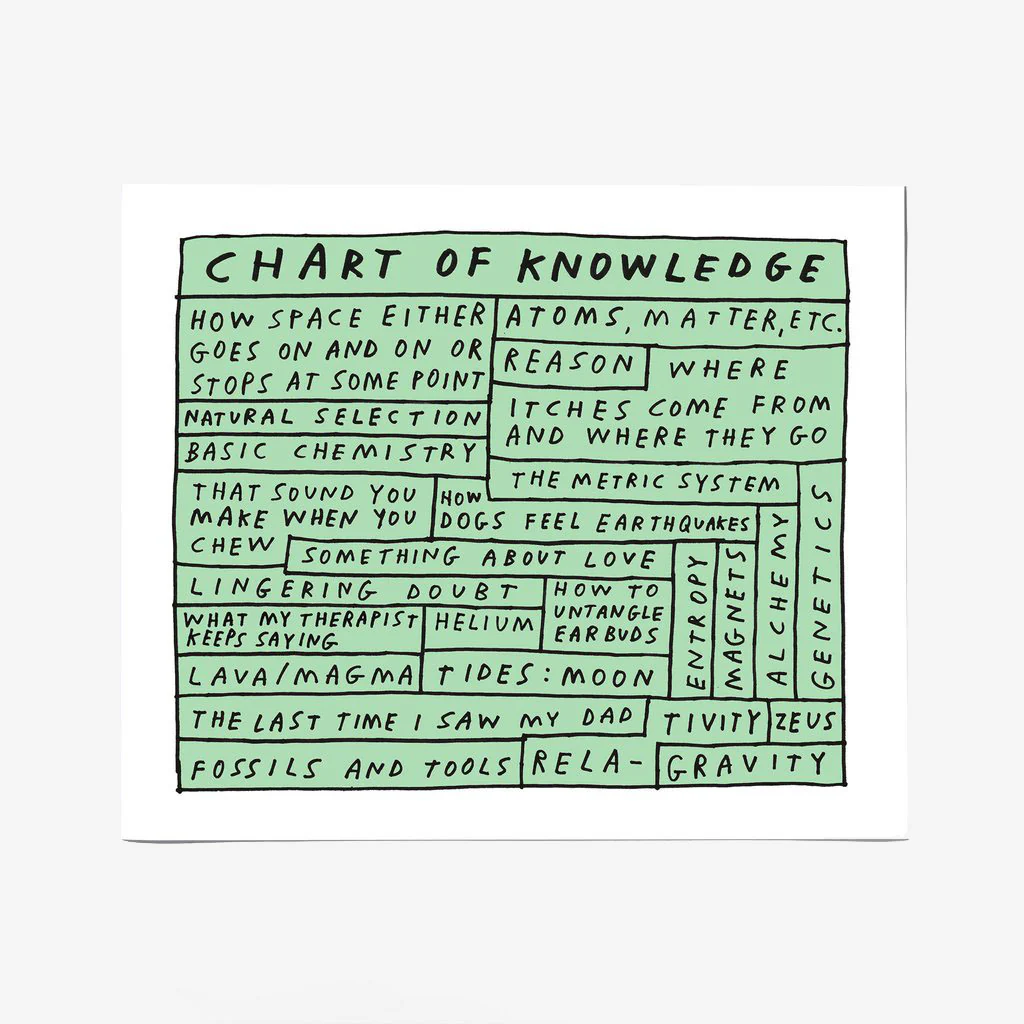 CHART OF KNOWLEDGE
HOW SPACE EITHER
GOES ON AND ON OR
STOPS AT SOME POINT
ATOMS, MATTER, ETC.
REASON
WHERE
ITCHES COME FROM
AND WHERE THEY GO
NATURAL SELECTION
BASIC CHEMISTRY
THE METRIC SYSTEM
THAT SOUND YOU
MAKE WHEN YOU
CHEW
HOW
DOGS FEEL EARTHQUAKES
SOMETHING ABOUT LOVE
ENTROPY
MAGNETS
ALCHEMY
GENETICS
LINGERING DOUBT
HOW TO
UNTANGLE
EARBUDS
WHAT MY THERAPIST
KEEPS SAYING
HELIUM
LAVA/MAGMA
TIDES: MOON
THE LAST TIME I SAW MY DAD
FOSSILS AND TOOLS
RELA-
TIVITY
ZEUS
GRAVITY